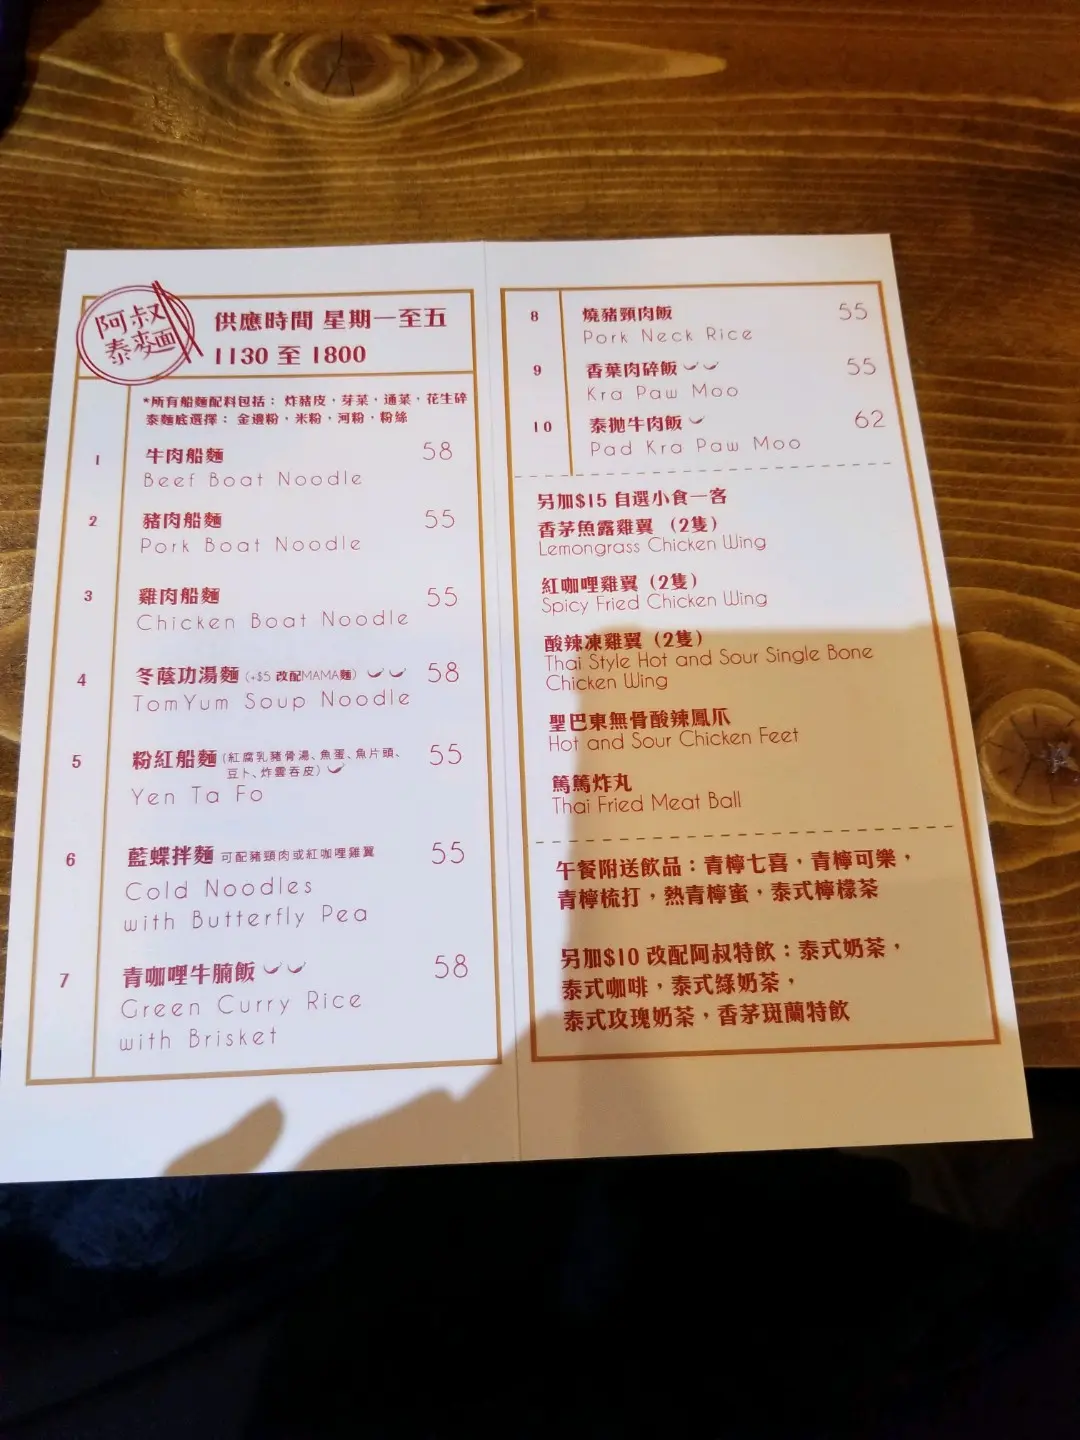 阿叔
泰麵
供應時間 星期一至五
1130 至 1800
*所有船麵配料包括： 炸豬皮，芽菜，通菜，花生碎
泰麵底選擇： 金邊粉，米粉，河粉，粉絲
1 牛肉船麵 58
Beef Boat Noodle
2 豬肉船麵 55
Pork Boat Noodle
3 雞肉船麵 55
Chicken Boat Noodle
4 冬蔭功湯麵 (+$5 改配MAMA麵) 58
TomYum Soup Noodle
5 粉紅船麵 (紅腐乳豬骨湯、魚蛋、魚片頭、 55
豆卜、炸雲吞皮)
Yen Ta Fo
6 藍蝶拌麵 可配豬頸肉或紅咖哩雞翼 55
Cold Noodles
with Butterfly Pea
7 青咖哩牛腩飯 58
Green Curry Rice
with Brisket
8 燒豬頸肉飯 55
Pork Neck Rice
9 香葉肉碎飯 55
Kra Paw Moo
10 泰拋牛肉飯 62
Pad Kra Paw Moo
另加$15 自選小食一客
香茅魚露雞翼 （2隻）
Lemongrass Chicken Wing
紅咖哩雞翼（2隻）
Spicy Fried Chicken Wing
酸辣凍雞翼（2隻）
Thai Style Hot and Sour Single Bone
Chicken Wing
聖巴東無骨酸辣鳳爪
Hot and Sour Chicken Feet
篤篤炸丸
Thai Fried Meat Ball
午餐附送飲品：青檸七喜，青檸可樂，
青檸梳打，熱青檸蜜，泰式檸檬茶
另加$10 改配阿叔特飲：泰式奶茶，
泰式咖啡，泰式綠奶茶，
泰式玫瑰奶茶，香茅斑蘭特飲